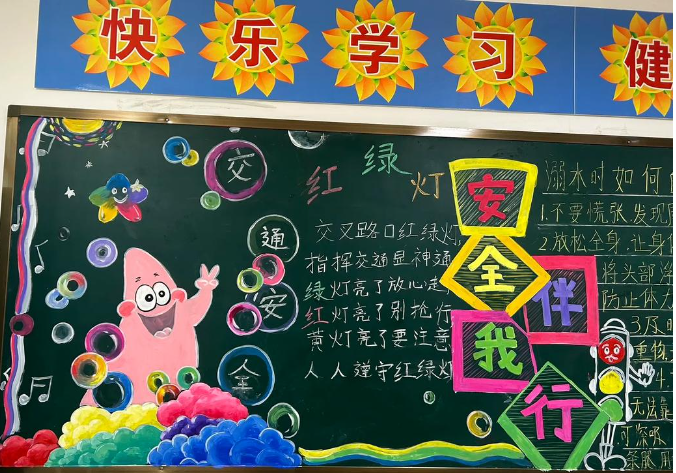 快乐学习 健
交通安全
红绿灯
交叉路口红绿灯
指挥交通显神通
绿灯亮了放心走
红灯亮了别抢行
黄灯亮了要注意
人人遵守红绿灯
安全伴我行
溺水时如何
1.不要慌张,发现
2.放松全身,让身
将头部
防止体力
3.及时
4.
无法靠
可深吸